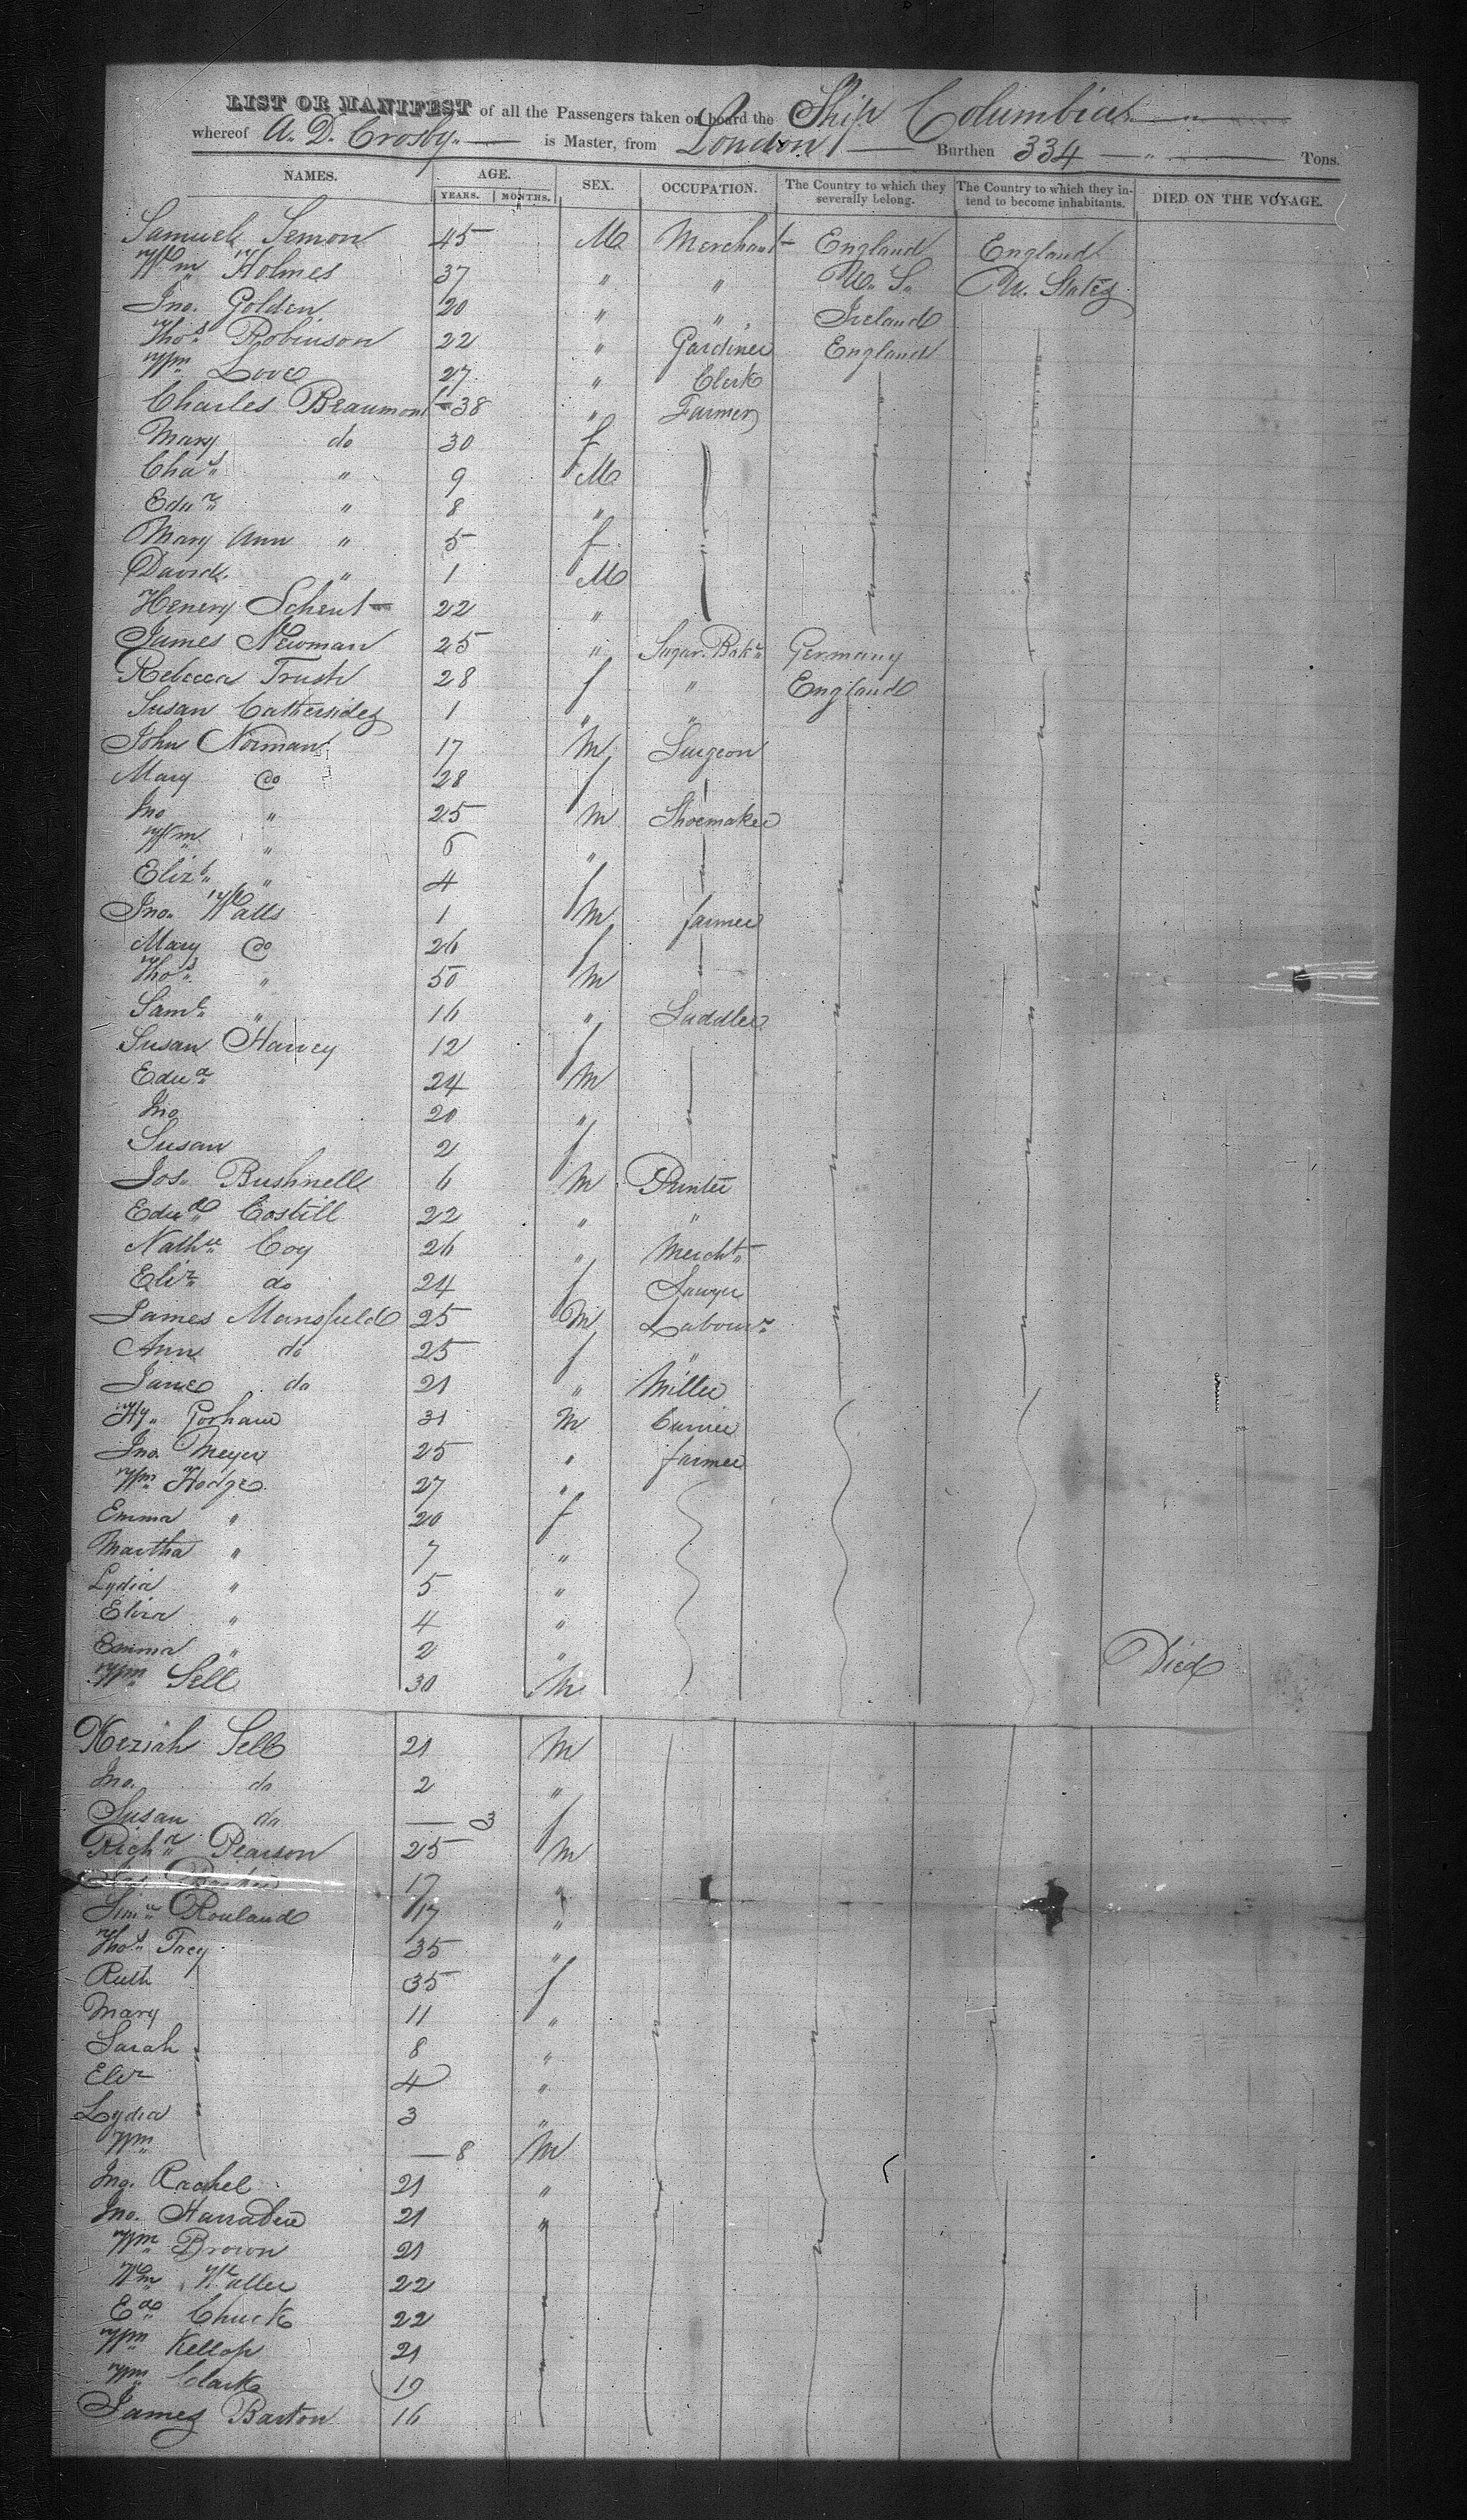 LIST OR MANIFEST of all the Passengers taken on board the Ship Columbia
whereof A. D. Crosby is Master, from London Burthen 334 Tons.
NAMES. AGE. SEX. OCCUPATION. The Country to which they severally belong. The Country to which they intend to become inhabitants. DIED ON THE VOYAGE.
YEARS. MONTHS.
Samuel Semon 45 M Merchant England England
Wm Holmes 37 " " U. S. U. States
Jno. Golden 20 " " Ireland
Thos Robinson 22 " Gardiner England
Wm Love 27 " Clerk "
Charles Beaumont 38 " Farmer
Mary do 30 f
Chas " 9 M
Edwd " 8 "
Mary Ann " 5 f
David " 1 M
Henery Schent 22 "
James Newman 25 " Sugar Bakr Germany
Rebecca Trush 28 f " England
Susan Cattersides 1 " "
John Norman 17 M Surgeon
Mary do 28 f
Jno " 25 M Shoemaker
Wm " 6 "
Elizh " 4 f
Jno. Watts 1 M farmer
Mary do 26 f
Thos " 50 M
Saml " 16 " Saddler
Susan Harvey 12 f
Edwd 24 M
Jno 20 "
Susan 2 f
Jos. Bushnell 6 M Printer
Edwd Costill 22 " "
Nathl Coy 26 " Mercht
Eliz do 24 f Sawyer
James Mansfield 25 M Labourr
Ann do 25 f "
Jane do 21 " Miller
Hy. Gorham 31 M Currier
Jno. Meyer 25 " farmer
Wm Hodge 27 "
Emma " 20 f
Martha " 7 "
Lydia " 5 "
Eliza " 4 "
Emma " 2 " Died
Wm Sell 30 M
Keziah Sell 21 M
Jno. do 2 "
Susan do — 3 f
Richd Pearson 25 M
17 "
Rouland 17 "
Thos Tracy 35 "
Ruth 35 f
Mary 11 "
Sarah 8 "
Eliz 4 "
Lydia 3 "
Wm — 8 M
Jno. Rachel 21 "
Jno. Harraden 21 "
Wm Brown 21
Wm Waller 22
Ed Chuck 22
Wm Kellop 21
Wm Clark 19
James Barton 16